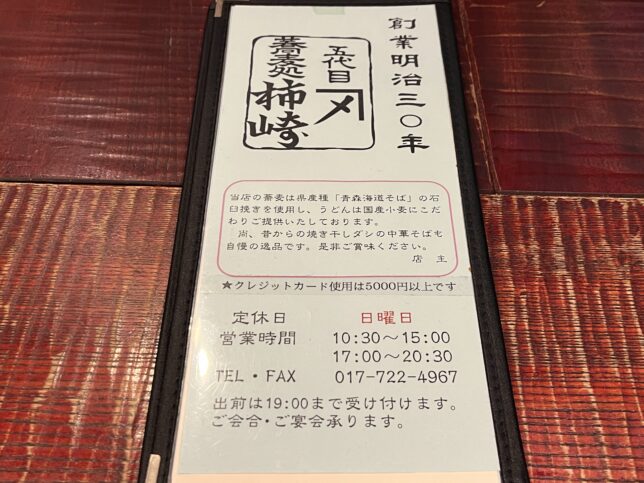 創業明治三〇年
五代目
蕎麦処
柿崎
当店の蕎麦は県産種「青森海道そば」の石
臼挽きを使用し、うどんは国産小麦にこだ
わりご提供いたしております。
尚、昔からの焼き干しダシの中華そばも
自慢の逸品です。是非ご賞味ください。
店 主
★クレジットカード使用は5000円以上です
定休日 日曜日
営業時間 10:30～15:00
17:00～20:30
TEL・FAX 017-722-4967
出前は19:00まで受け付けます。
ご会合・ご宴会承ります。